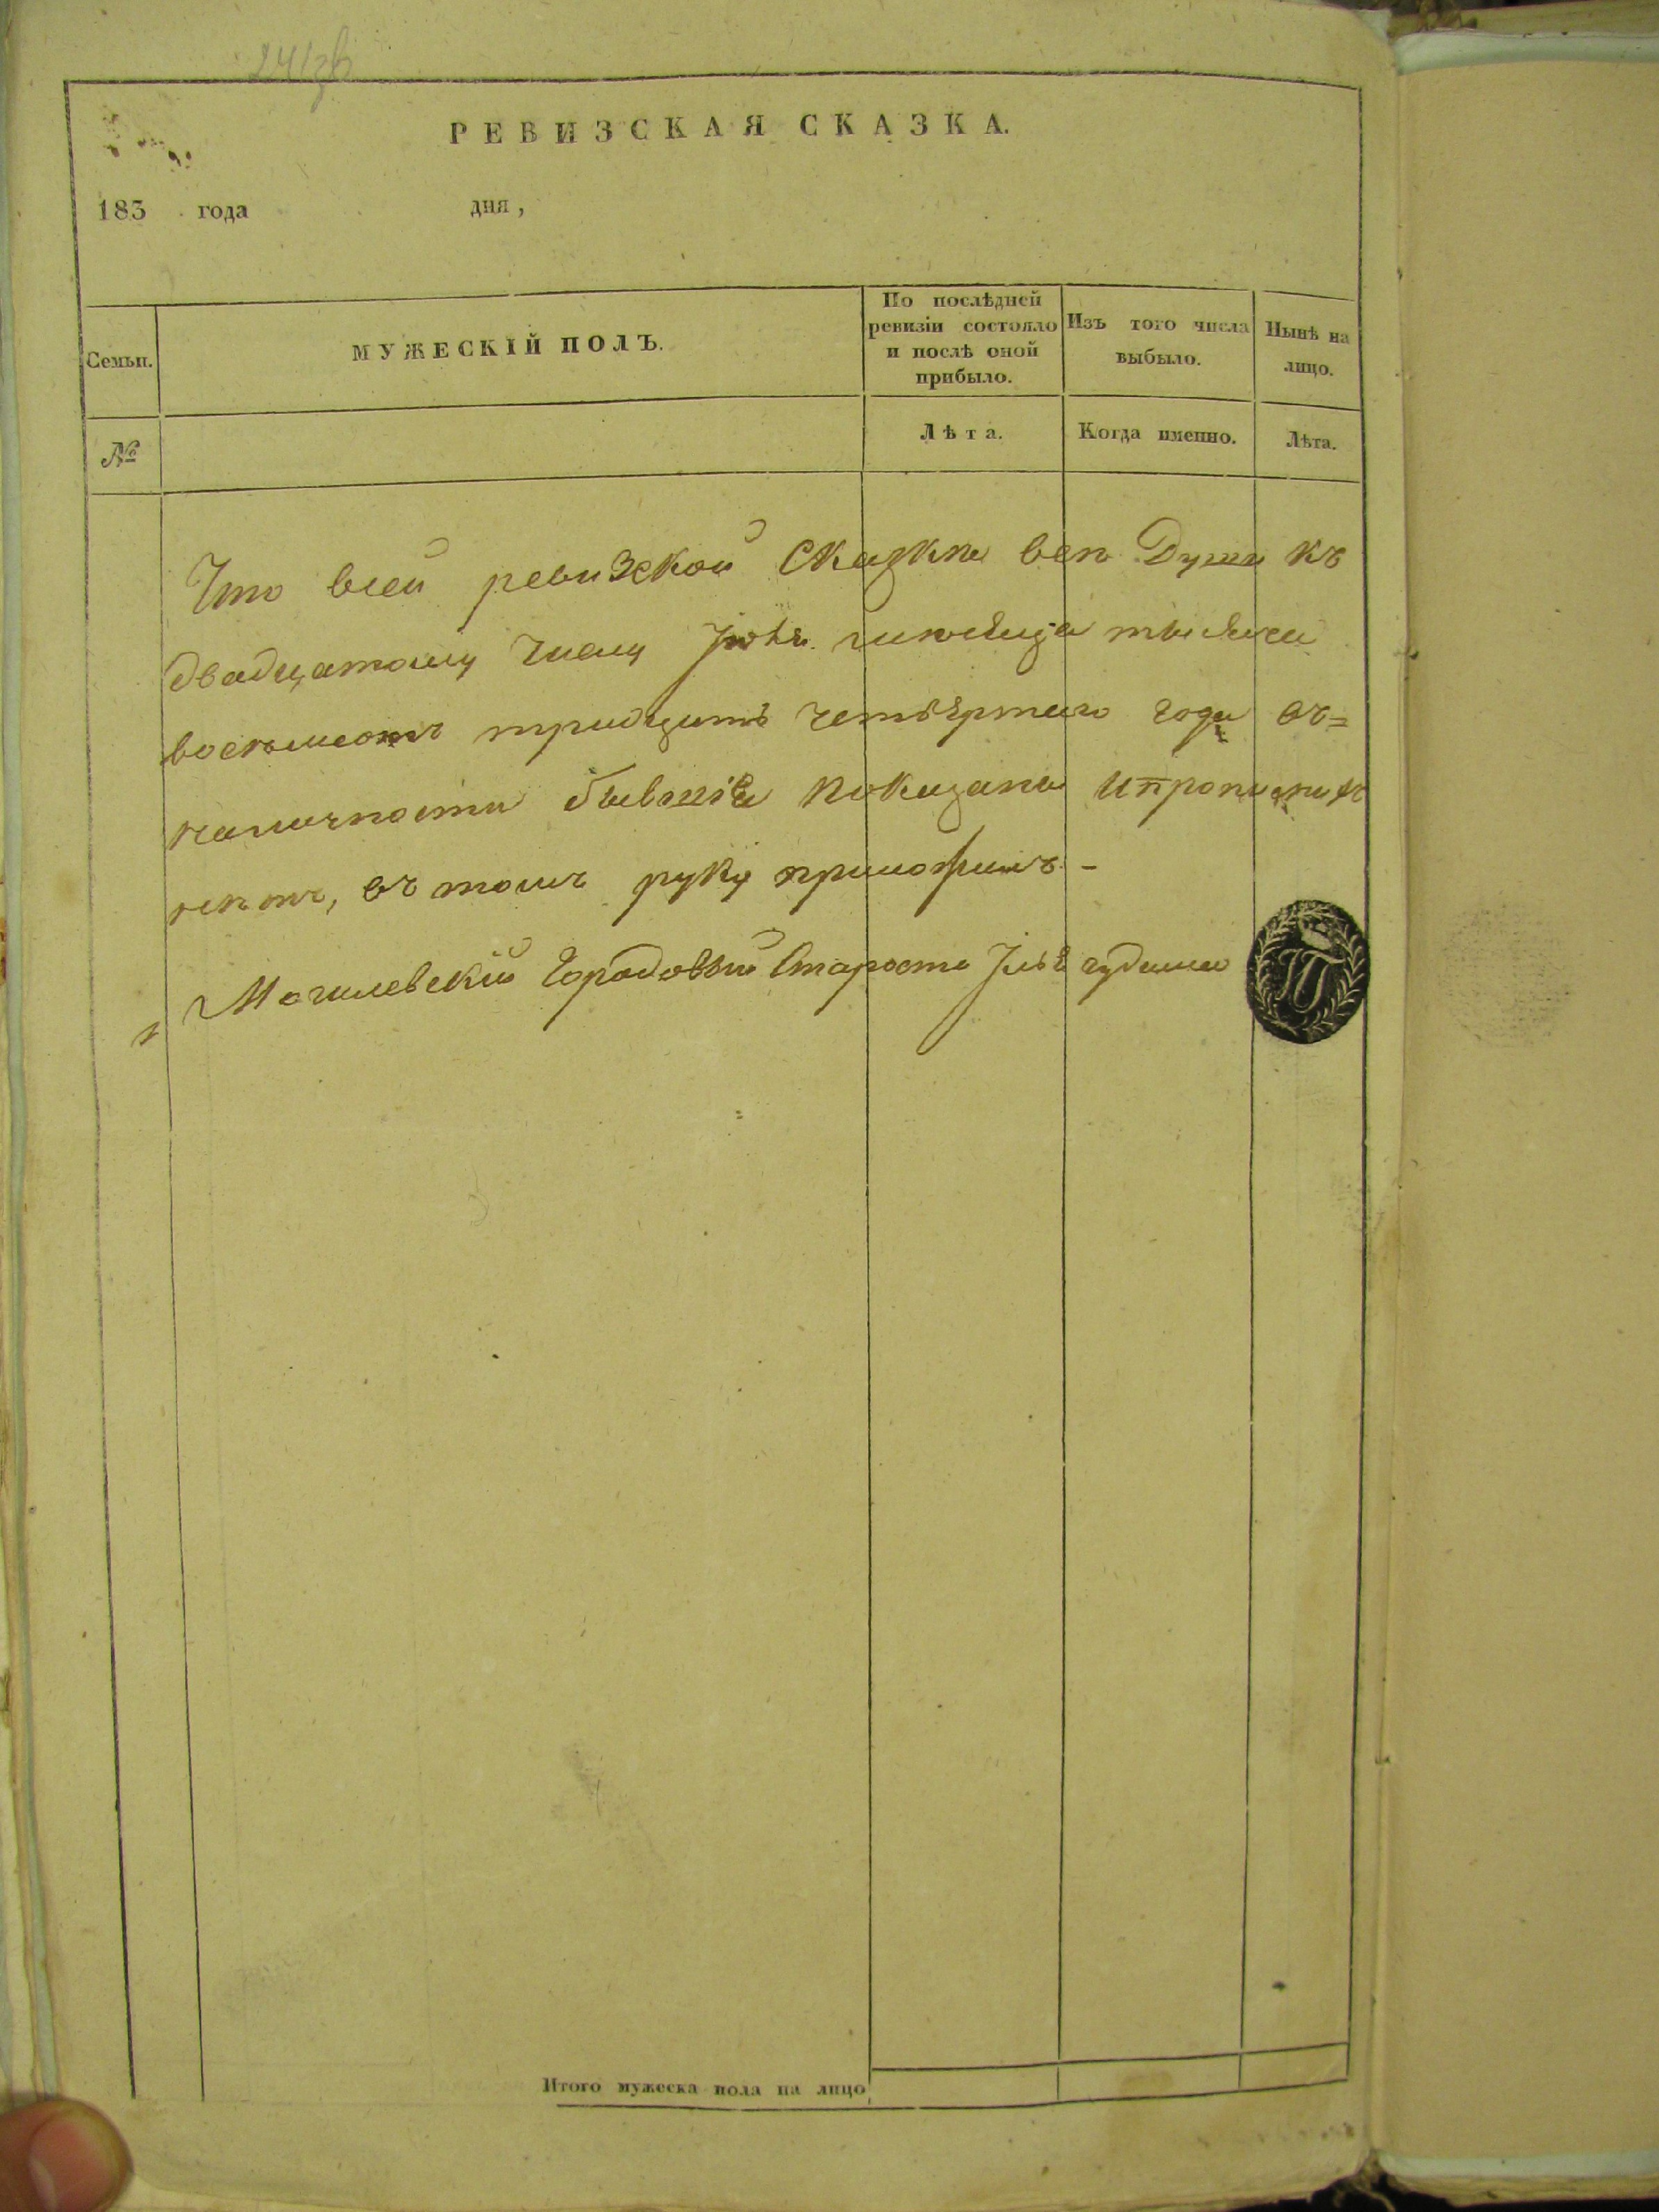 РЕВИЗСКАЯ СКАЗКА.
183 года дня,
Семьи.
МУЖЕСКІЙ ПОЛЪ.
По послѣдней
ревизіи состояло
и послѣ оной
прибыло.
Изъ того числа
выбыло.
Нынѣ на
лицо.
№
Лѣта.
Когда именно.
Лѣта.
Что всей ревизской Сказке все Души къ
двадцатому числу тысяча
восемьсотъ тридцать четвертаго года въ=
наличности бывшіе показаны и
нетъ, въ томъ руку приложилъ –
Могилевскій Городовый Староста
Итого мужеска пола на лицо